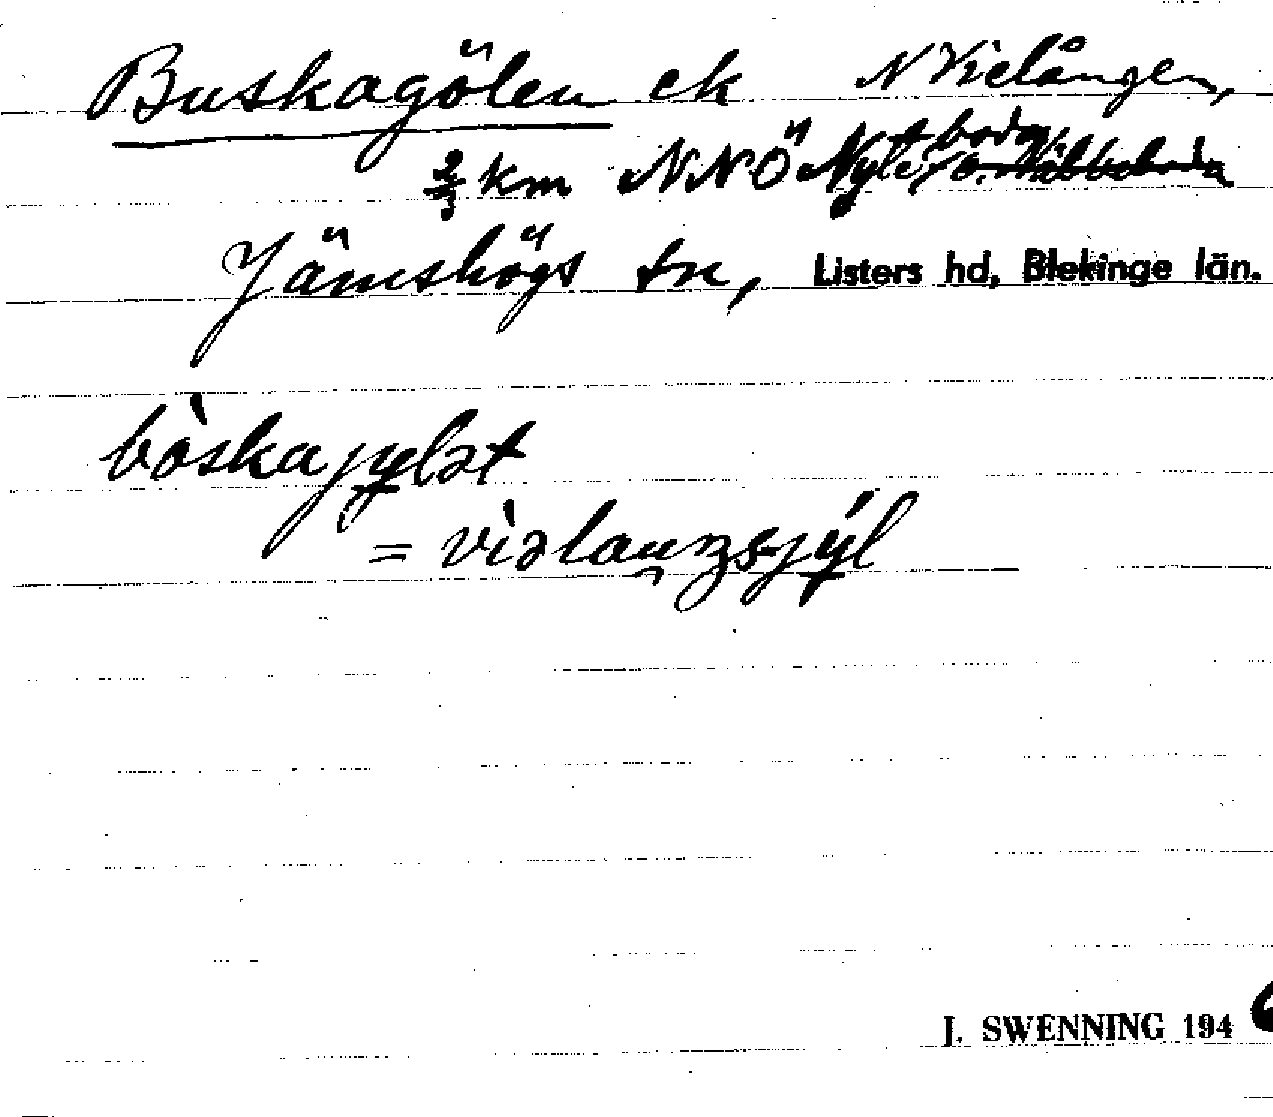 Buskagölen ek N Vielången,
km NNÖ
Jämshögs sn, Listers hd, Blekinge län.
bòskajylət
= vìəlaŋsjýl
J. SWENNING 194